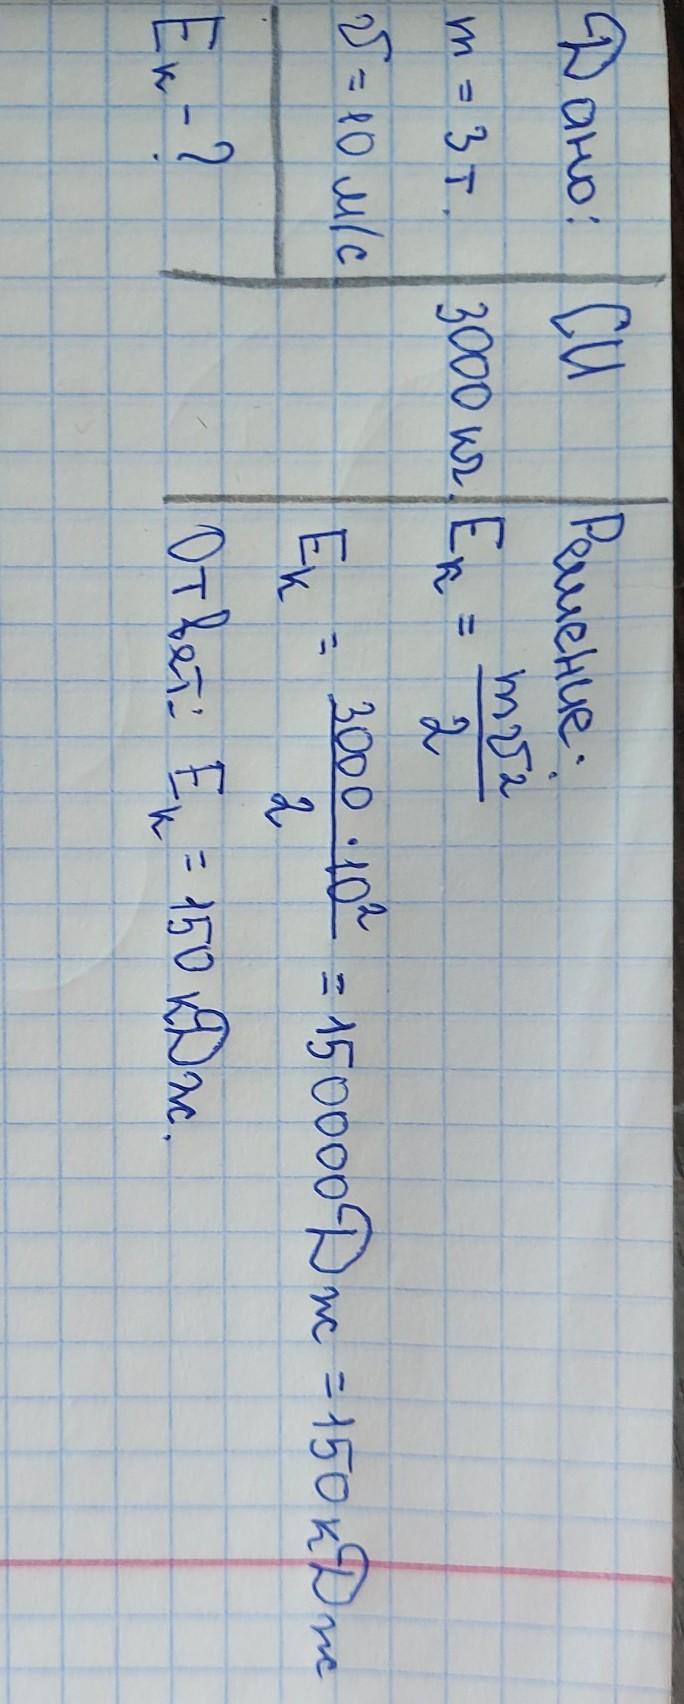 Дано:
m = 3 т.
v = 10 м/с
Eк - ?
СИ
3000 кг.
Решение:
Eк = mv²/2
Eк = 3000 · 10²/2 = 150000 Дж = 150 кДж
Ответ: Eк = 150 кДж.